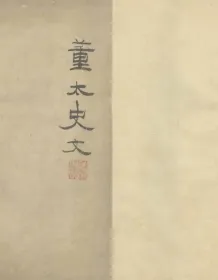 董太史文